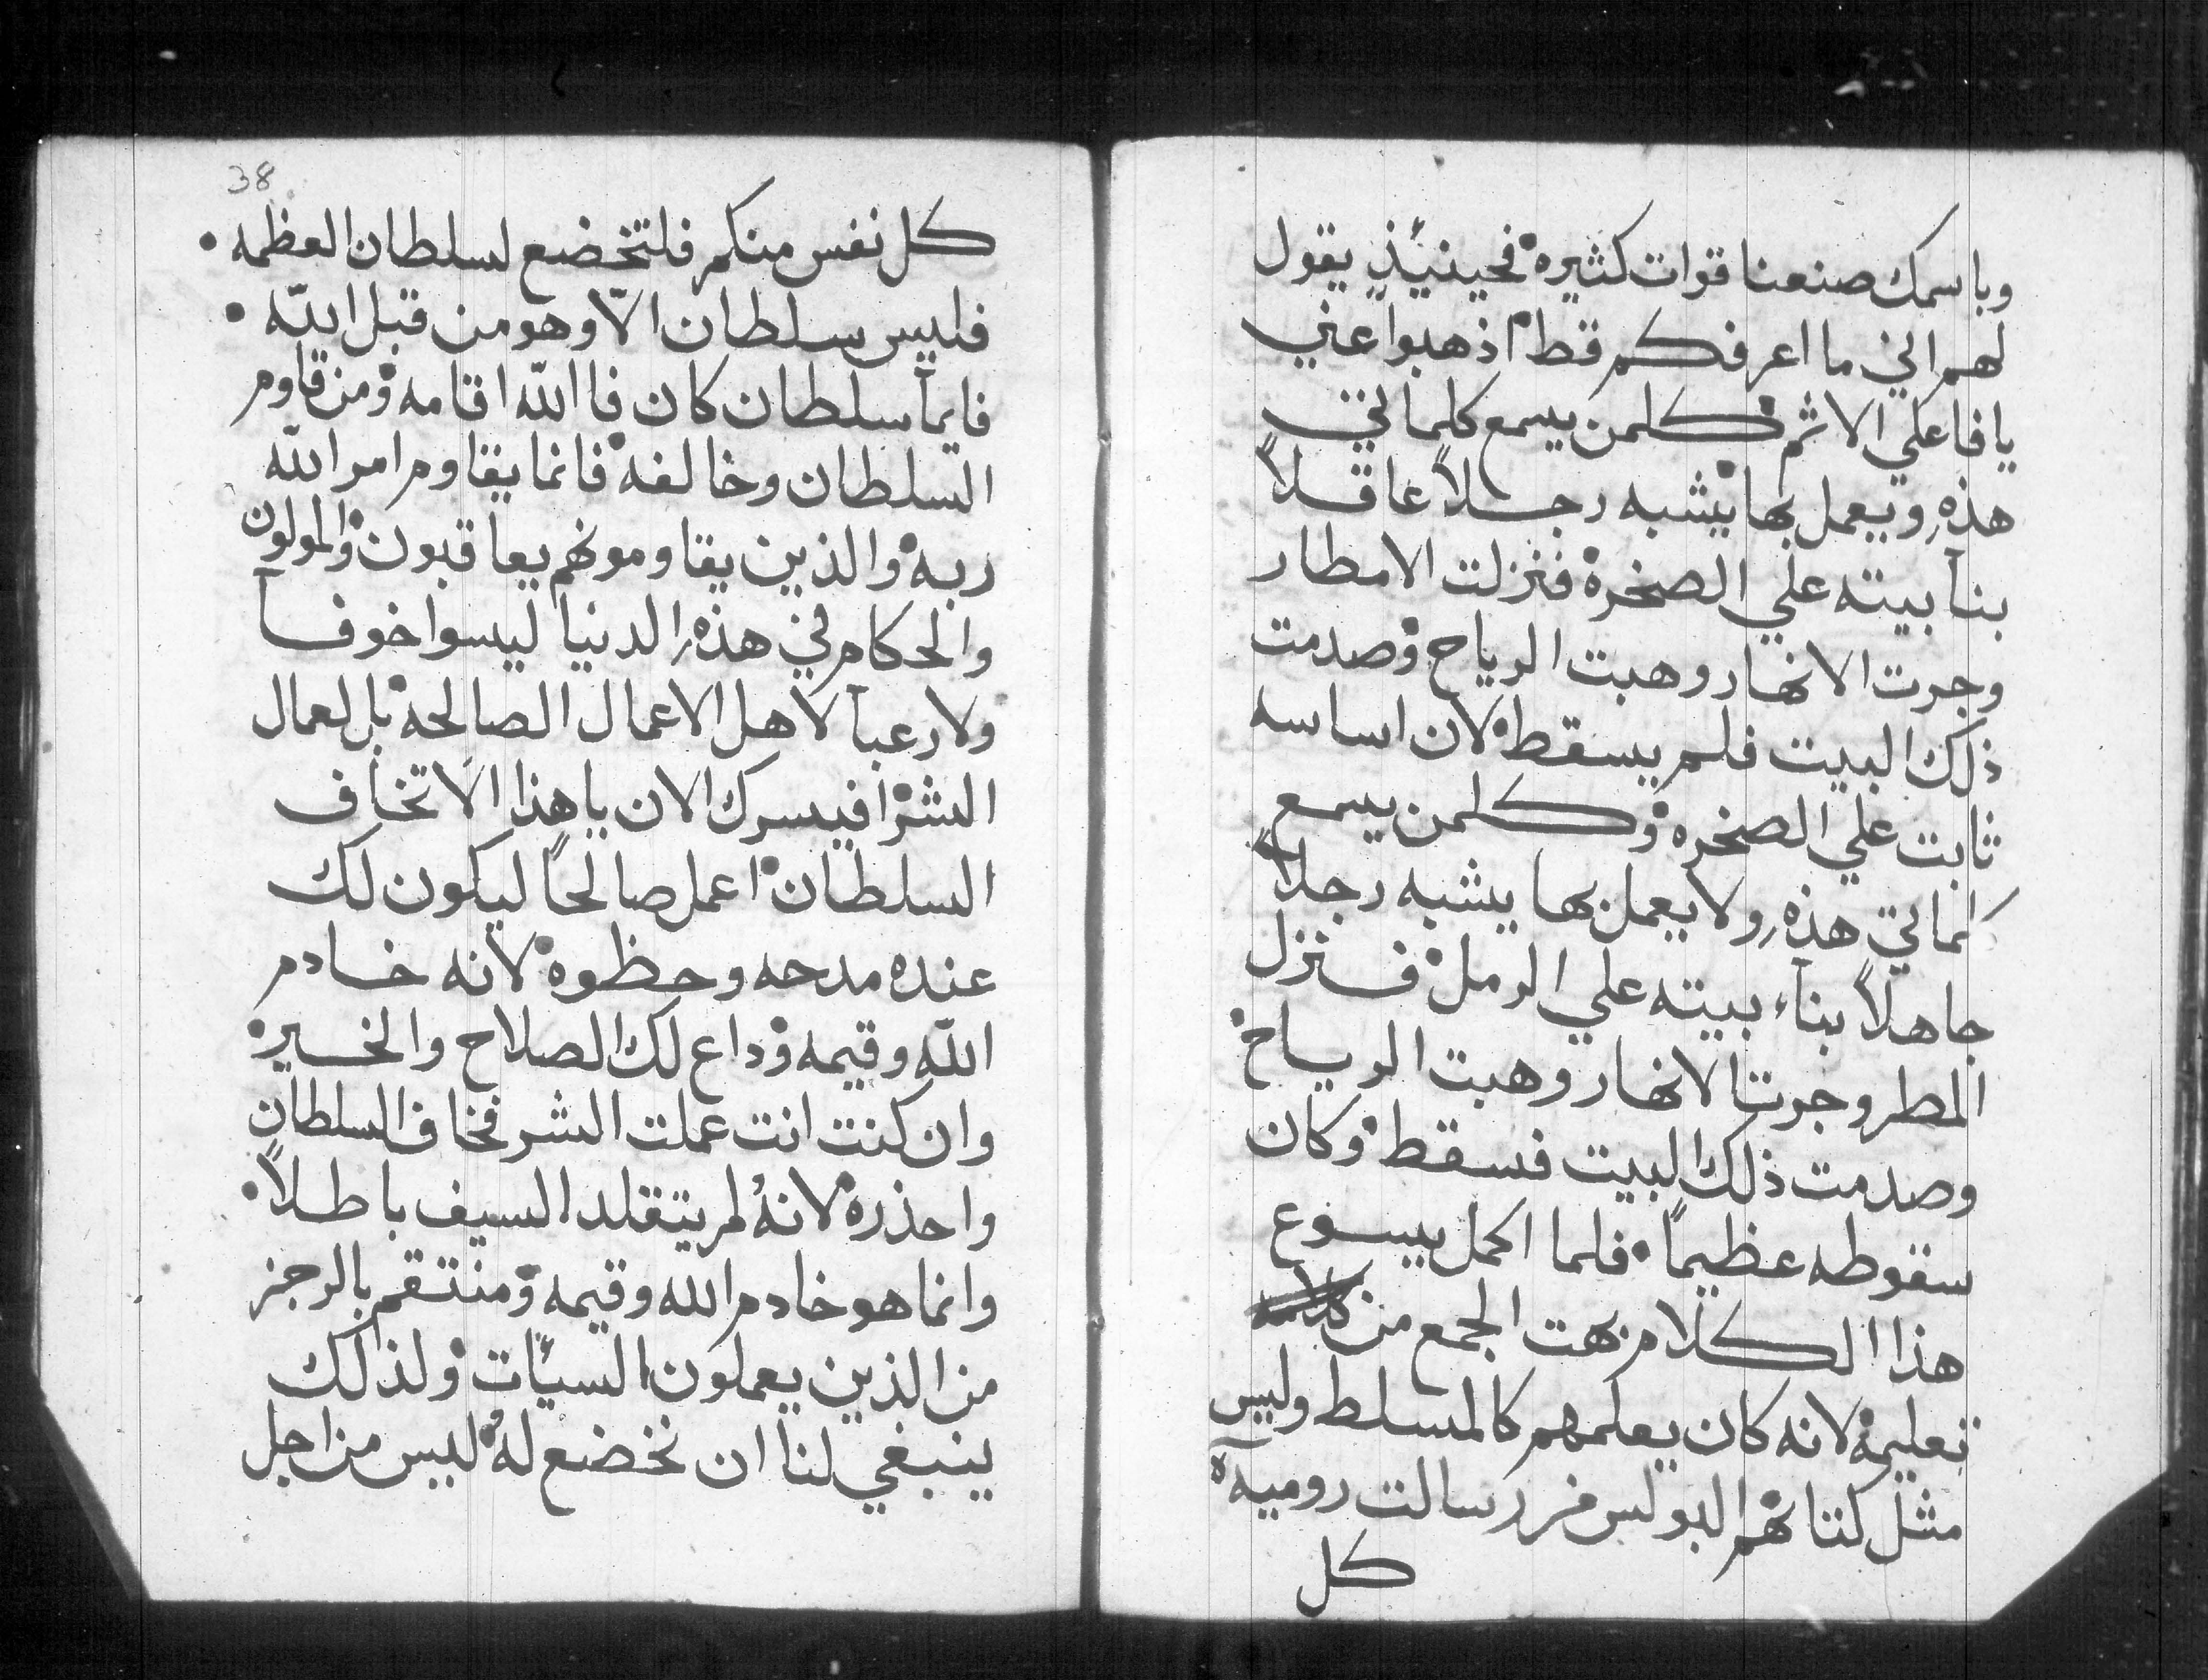 وباسمك صنعنا قوات كثيره فحينيئذٍ يقول
لهم اني ما اعرفكم قط اذهبوا عني
يا فاعلي الاثم كلمن يسمع كلماتي
هذهِ ويعمل بها يشبه رجلاً عاقلاً
بنا بيته علي الصخرة فنزلت الامطار
وجرت الانهار وهبت الرياح وصدمت
ذلك البيت فلم يسقط لان اساسه
ثابت علي الصخره وكلمن يسمع
كلماتي هذهِ ولا يعمل بها يشبه رجلاً
جاهلاً بناء بيته علي الرمل فنزل
المطر وجرت الانهار وهبت الرياح
وصدمت ذلك البيت فسقط وكان
سقوطه عظيماً • فلما اكمل يسوع
هذا الكلام بهت الجمع من
تعليمه لانه كان يعلمهم كالمسلط وليس
مثل كتابهم البولس من رسالت روميه
كل
38
كل نفس منكم فلتخضع لسلطان العظمه •
فليس سلطان الّا وهو من قبل الله •
فايما سلطان كان فاالله اقامه ومن قاوم
السلطان وخالفه فانما يقاوم امر الله
ربه والذين يقاومونهم يعاقبون والمولون
والحكام في هذهِ الدنيا ليسوا خوفا
ولا رعبا لاهل الاعمال الصالحه بل لعمال
الشر افيسرك الان يا هذا الا تخاف
السلطان اعمل صالحاً ليكون لك
عنده مدحه وحظوه لانه خادم
الله وقيمه وداع لك الصلاح والخير
وان كنت انت عملت الشر فخاف السلطان
واحذره لانهُ لم يتقلد السيف باطلاً •
وانما هو خادم الله وقيمه ومنتقم بالرجز
من الذين يعملون السيّات ولذلك
ينبغي لنا ان نخضع لهُ ليس من اجل